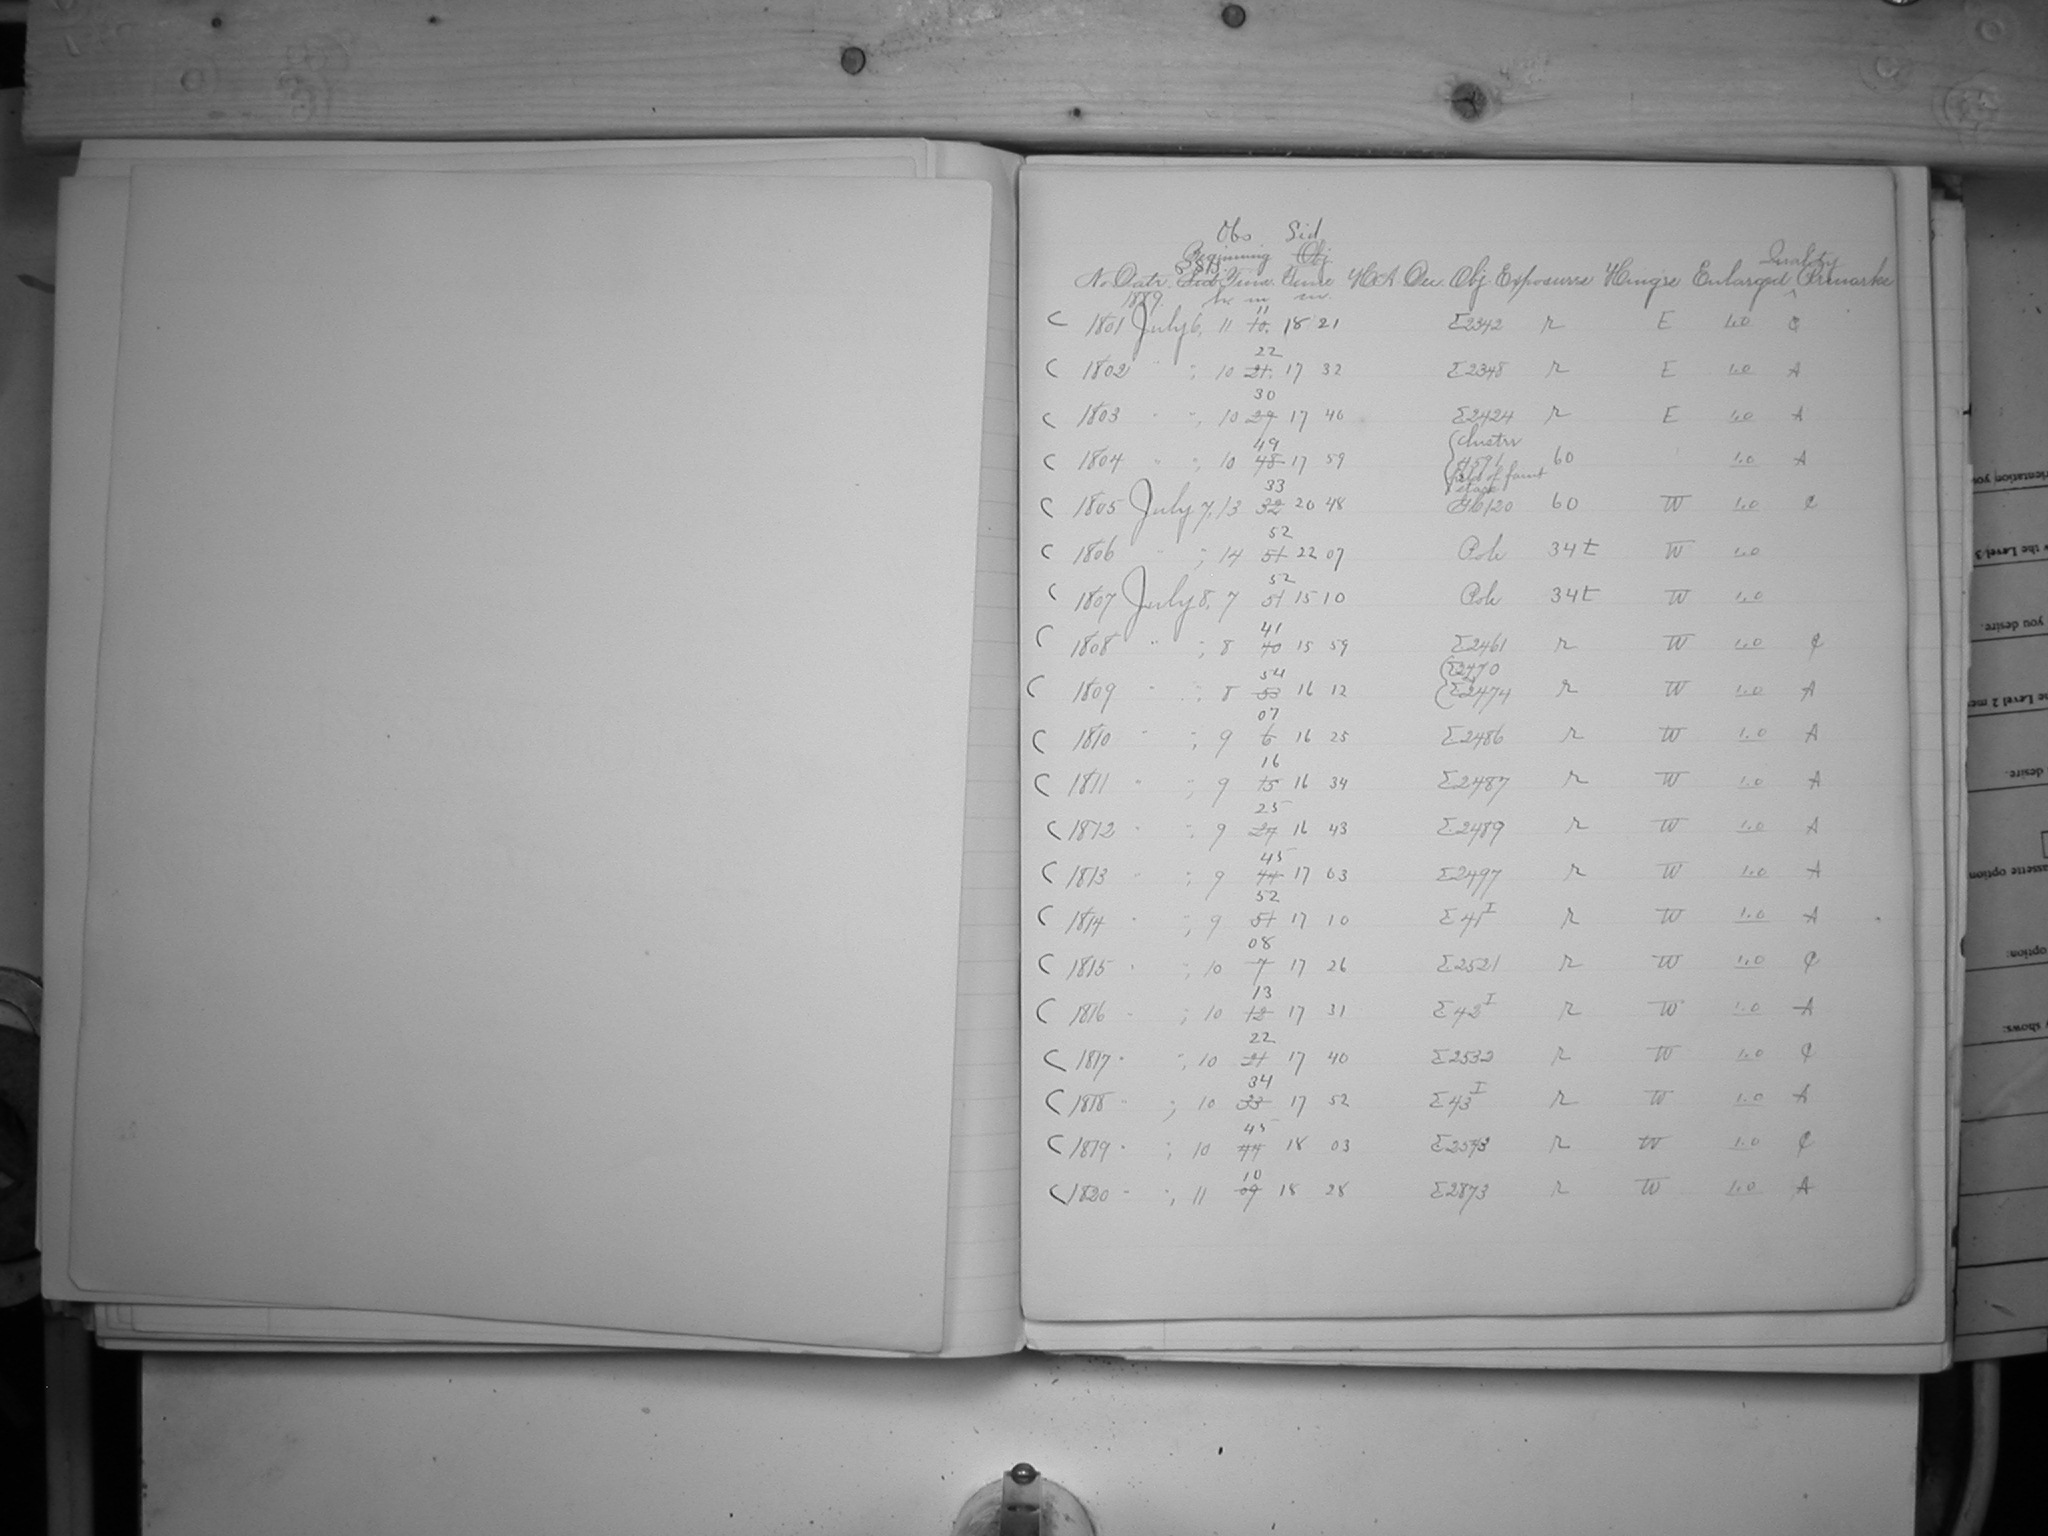 Obs Sid
Beginning Obj.
No. Date. Sid Time. Time H.A. Dec. Obj. Exposures Hinge Enlarged Quality Remarks
1889. h. m m.
11
C 1801 July 6, 11 10. 18 21 Σ2342 r E 1.0 C
22
C 1802 " ", 10 21. 17 32 Σ2348 r E 1.0 A
30
C 1803 " ", 10 29 17 40 Σ2424 r E 1.0 A
49 Cluster
C 1804 " ", 10 48 17 59 4591 60 1.0 A
field of faint
33 stars
C 1805 July 7, 13 32 20 48 60 W 1.0 C
52
C 1806 " ; 14 51 22 07 Pole 34t W 1.0
52
C 1807 July 8, 7 51 15 10 Pole 34t W 1.0
41
C 1808 " ; 8 40 15 59 Σ2461 r W 1.0 C
54 Σ2470
C 1809 " ; 8 53 16 12 Σ2474 r W 1.0 A
07
C 1810 " ; 9 6 16 25 Σ2486 r W 1.0 A
16
C 1811 " ; 9 15 16 34 Σ2487 r W 1.0 A
25
C 1812 " ; 9 24 16 43 Σ2489 r W 1.0 A
45
C 1813 " ; 9 44 17 03 Σ2497 r W 1.0 A
52
C 1814 " ; 9 51 17 10 Σ41 I r W 1.0 A
08
C 1815 " ; 10 7 17 26 Σ2521 r W 1.0 C
13
C 1816 " ; 10 12 17 31 Σ42 I r W 1.0 A
22
C 1817 " ; 10 21 17 40 Σ2532 r W 1.0 C
34
C 1818 " ; 10 33 17 52 Σ43 I r W 1.0 A
45
C 1819 " ; 10 44 18 03 r W 1.0 C
10
C 1820 " ; 11 09 18 28 Σ2873 r W 1.0 A